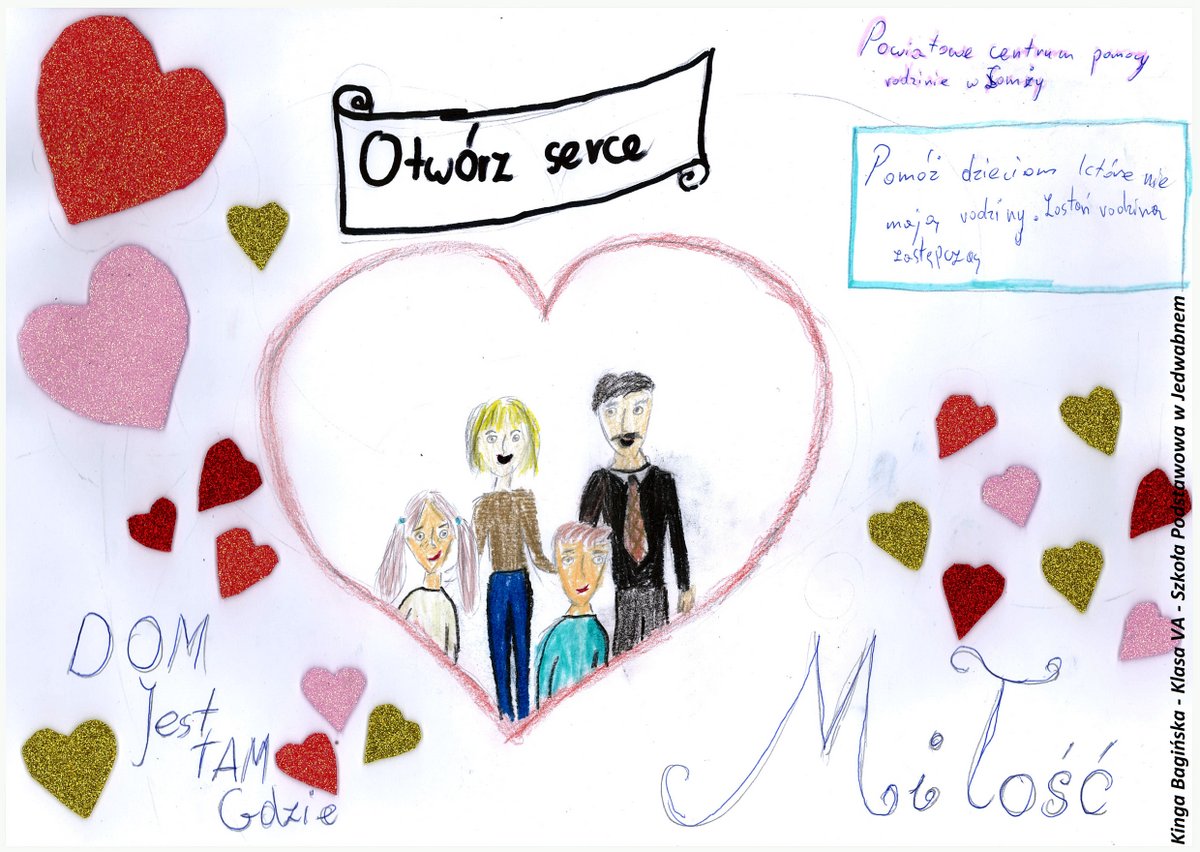 Powiatowe centrum pomocy
rodzinie w Łomży
Otwórz serce
Pomóż dzieciom które nie
mają rodziny. Zostań rodziną
zastępczą
DOM
Jest
TAM
Gdzie
Miłość
Kinga Bagińska - Klasa VA - Szkoła Podstawowa w Jedwabnem